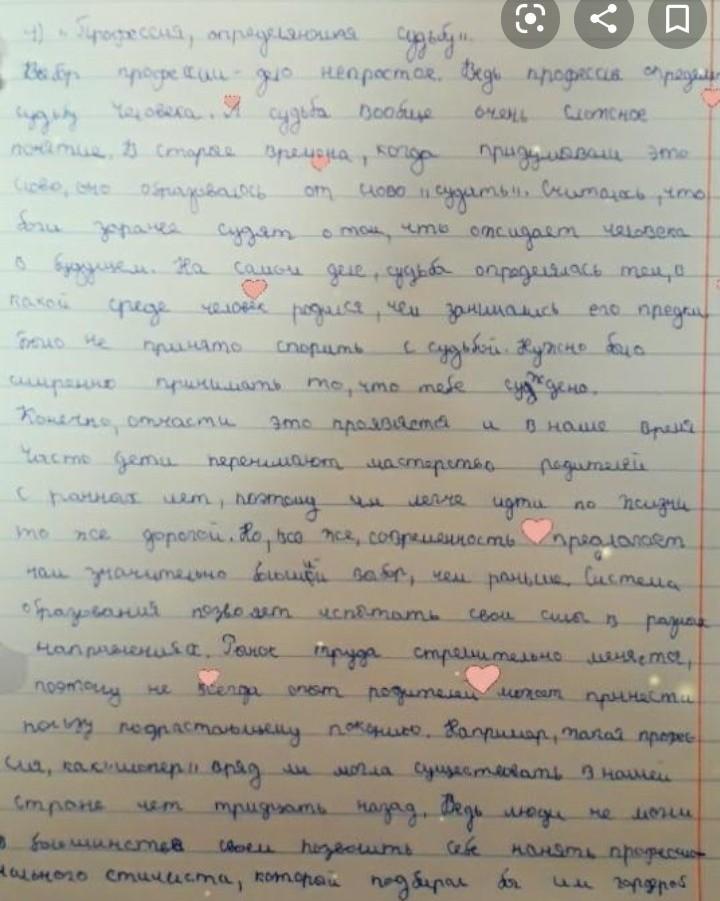 1) "Профессия, определяющая судьбу".
Выбор профессии - дело непростое. Ведь профессия определит
судьбу человека. А судьба вообще очень сложное
понятие. В старые времена, когда придумывали это
слово, оно образовалось от слово "судить". Считалось, что
боги заранее судят о том, что ожидает человека
в будущем. На самом деле, судьба определялась тем, в
какой среде человек родился, чем занимались его предки
было не принято спорить с судьбой. Нужно было
смиренно принимать то, что тебе суждено.
Конечно, отчасти это проявляется и в наше время
Часто дети перенимают мастерство родителей
с ранних лет, поэтому им легче идти по жизни
той же дорогой. Но, все же, современность предлагает
нам значительно больший выбор, чем раньше. Система
образования позволяет испытать свои силы в разных
направлениях. Рынок труда стремительно меняется,
поэтому не всегда опыт родителей может принести
пользу подрастающему поколению. Например, такая профес
сия, как "шопер" вряд ли могла существовать в нашей
стране лет тридцать назад. Ведь люди не могли
в большинстве своем позволить себе нанять професси
нального стилиста, который подбирал бы им гардероб